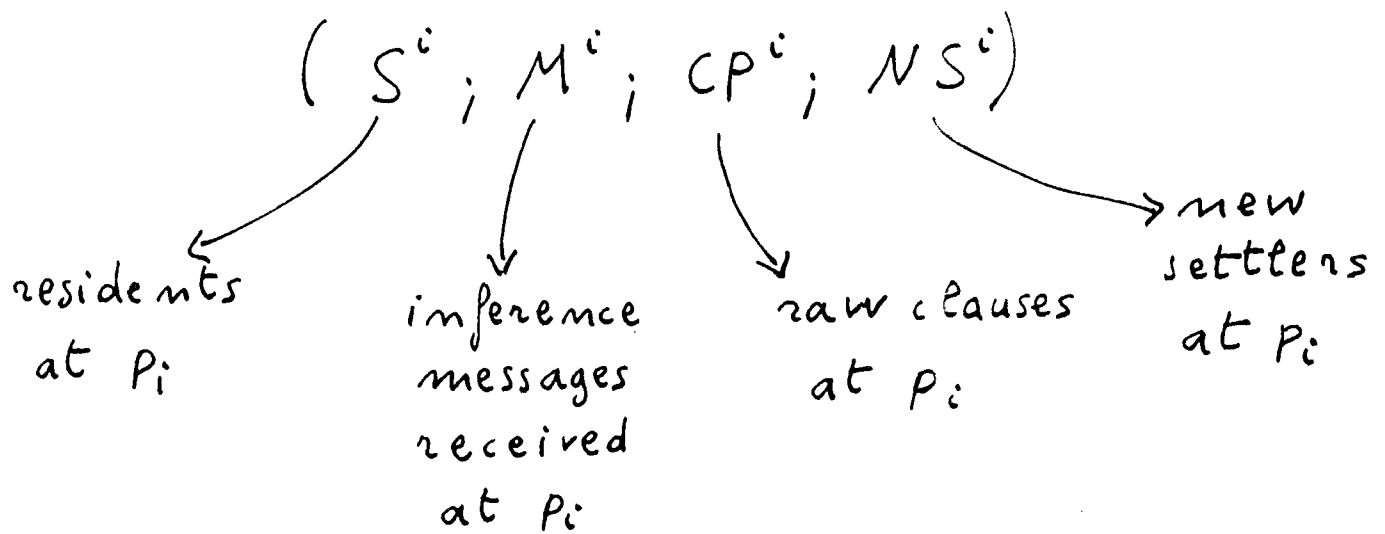 (Sⁱ; Mⁱ; CPⁱ; NSⁱ)
residents
at pᵢ
inference
messages
received
at pᵢ
raw clauses
at pᵢ
new
settlers
at pᵢ